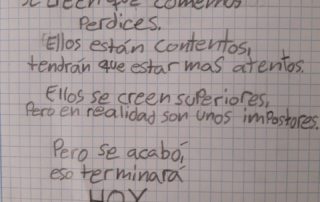 que comemos
perdices.
Ellos están contentos,
tendrán que estar mas atentos.
Ellos se creen superiores,
Pero en realidad son unos impostores.
Pero se acabó,
eso terminará
HOY